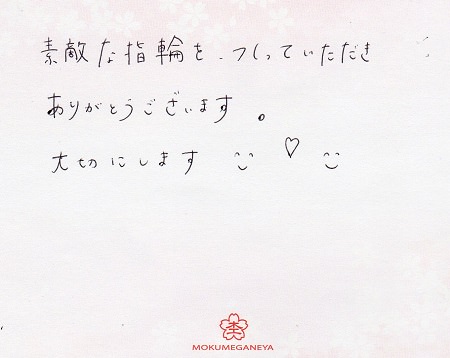 素敵な指輪を、つくっていただき
ありがとうございます。
大切にします ♡
MOKUMEGANEYA